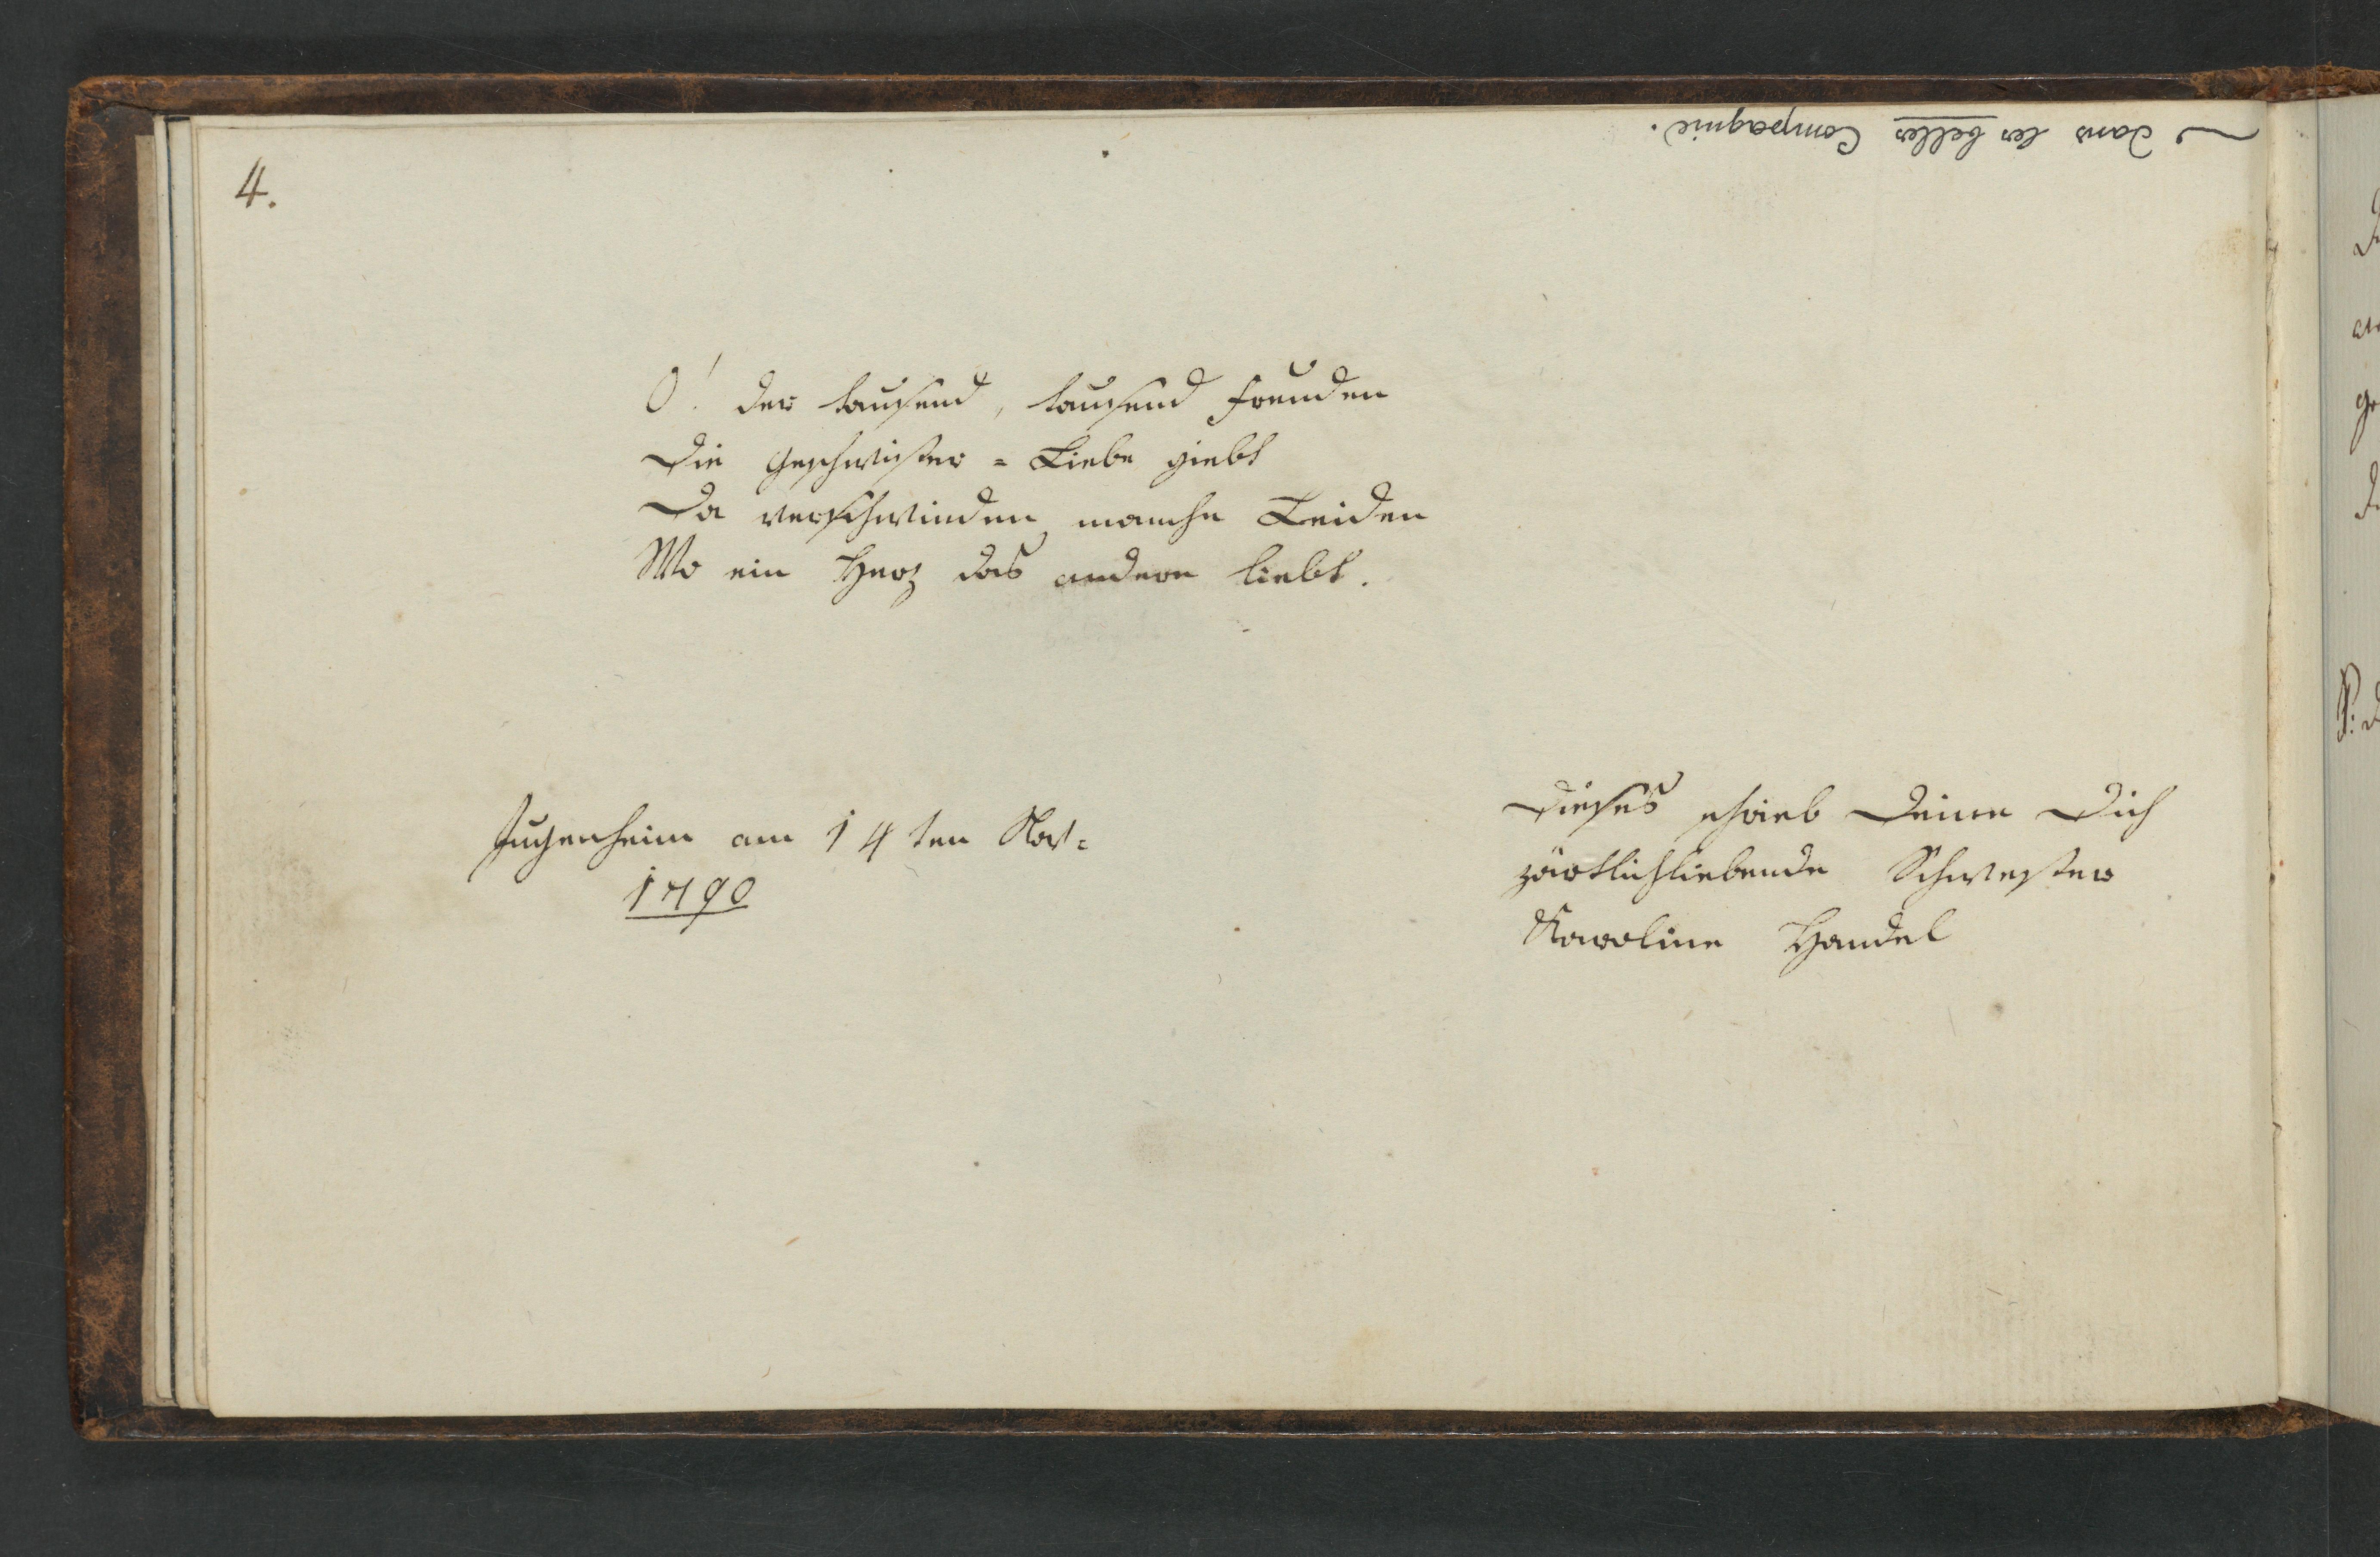 dans les belles Compagnie.
4.
O! der tausend, tausend Freuden
Die Geschwister=Liebe giebt
Da verschwinden manche Leiden
Wo ein Herz das andere liebt.
Jugenheim am 14ten Nov=
1790
Dieses schrieb Deine Dich
zärtlichliebende Schwester
Karoline Handel